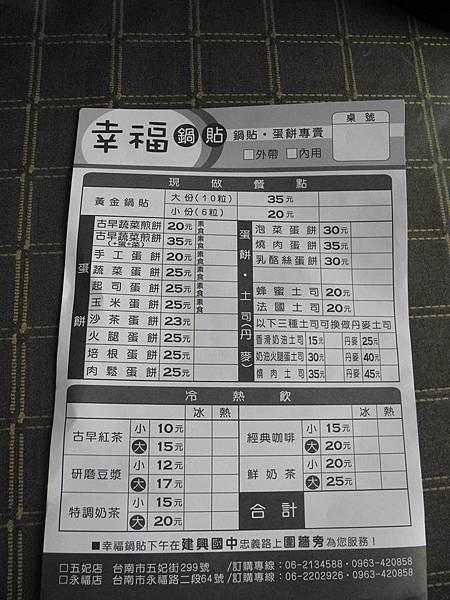 幸福鍋貼 鍋貼・蛋餅專賣 桌號
□外帶 □內用
現做餐點
黃金鍋貼 大份(10粒) 35元
小份(6粒) 20元
蛋餅
古早蔬菜煎餅 20元 素食
古早蔬菜煎餅(+蛋+菜) 35元 素食
手工蛋餅 20元 素食
蔬菜蛋餅 25元 素食
起司蛋餅 25元 素食
玉米蛋餅 25元 素食
沙茶蛋餅 23元
火腿蛋餅 25元
培根蛋餅 25元
肉鬆蛋餅 25元
蛋餅・土司(丹麥)
泡菜蛋餅 30元
燒肉蛋餅 35元
乳酪絲蛋餅 30元
蜂蜜土司 20元
法國土司 20元
以下三種土司可換做丹麥土司
香滑奶油土司 15元 丹麥 25元
奶油火腿蛋土司 30元 丹麥 40元
燒肉土司 35元 丹麥 45元
冷熱飲
冰 熱 冰 熱
古早紅茶 小 10元
大 15元
研磨豆漿 小 12元
大 17元
特調奶茶 小 15元
大 20元
經典咖啡 小 15元
大 20元
鮮奶茶 小 20元
大 25元
合計
■幸福鍋貼下午在建興國中忠義路上圍牆旁為您服務！
□五妃店 台南市五妃街299號 /訂購專線：06-2134588・0963-420858
□永福店 台南市永福路二段64號/訂購專線：06-2202926・0963-420858